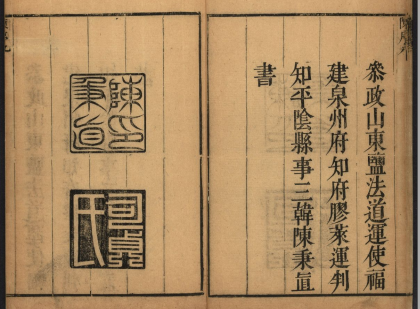 叅政山東鹽法道運使福
建泉州府知府膠萊運判
知平陰縣事三韓陳秉直
書
陳印
秉直
司貞
氏